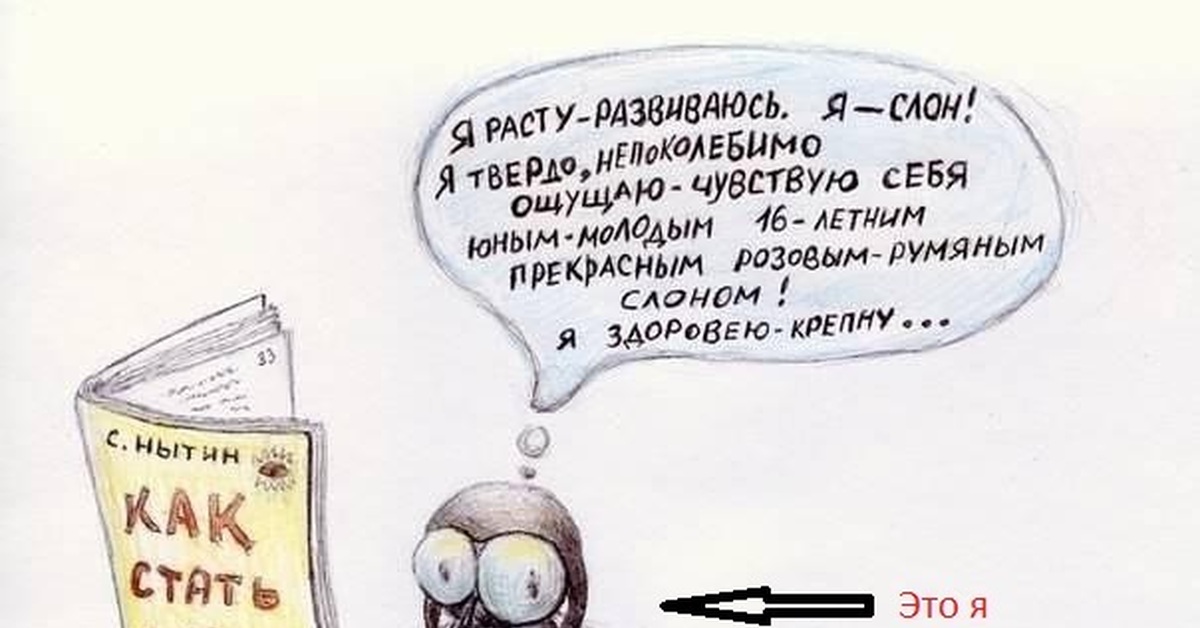 Я РАСТУ-РАЗВИВАЮСЬ. Я - СЛОН!
Я ТВЕРДО, НЕПОКОЛЕБИМО
ОЩУЩАЮ - ЧУВСТВУЮ СЕБЯ
ЮНЫМ-МОЛОДЫМ 16-ЛЕТНИМ
ПРЕКРАСНЫМ РОЗОВЫМ-РУМЯНЫМ
СЛОНОМ!
Я ЗДОРОВЕЮ-КРЕПНУ...
33
С. НЫТИН
КАК
СТАТЬ
Это я